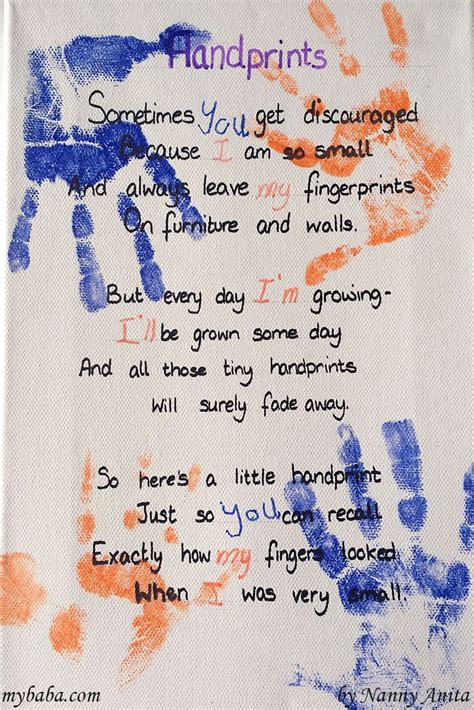 Handprints
Sometimes You get discouraged
Because I am so small
And always leave my fingerprints
On furniture and walls.
But every day I'm growing-
I'll be grown some day
And all those tiny handprints
Will surely fade away.
So here's a little handprint
Just so you can recall
Exactly how my fingers looked
When I was very small.
mybaba.com
by Nanny Anita